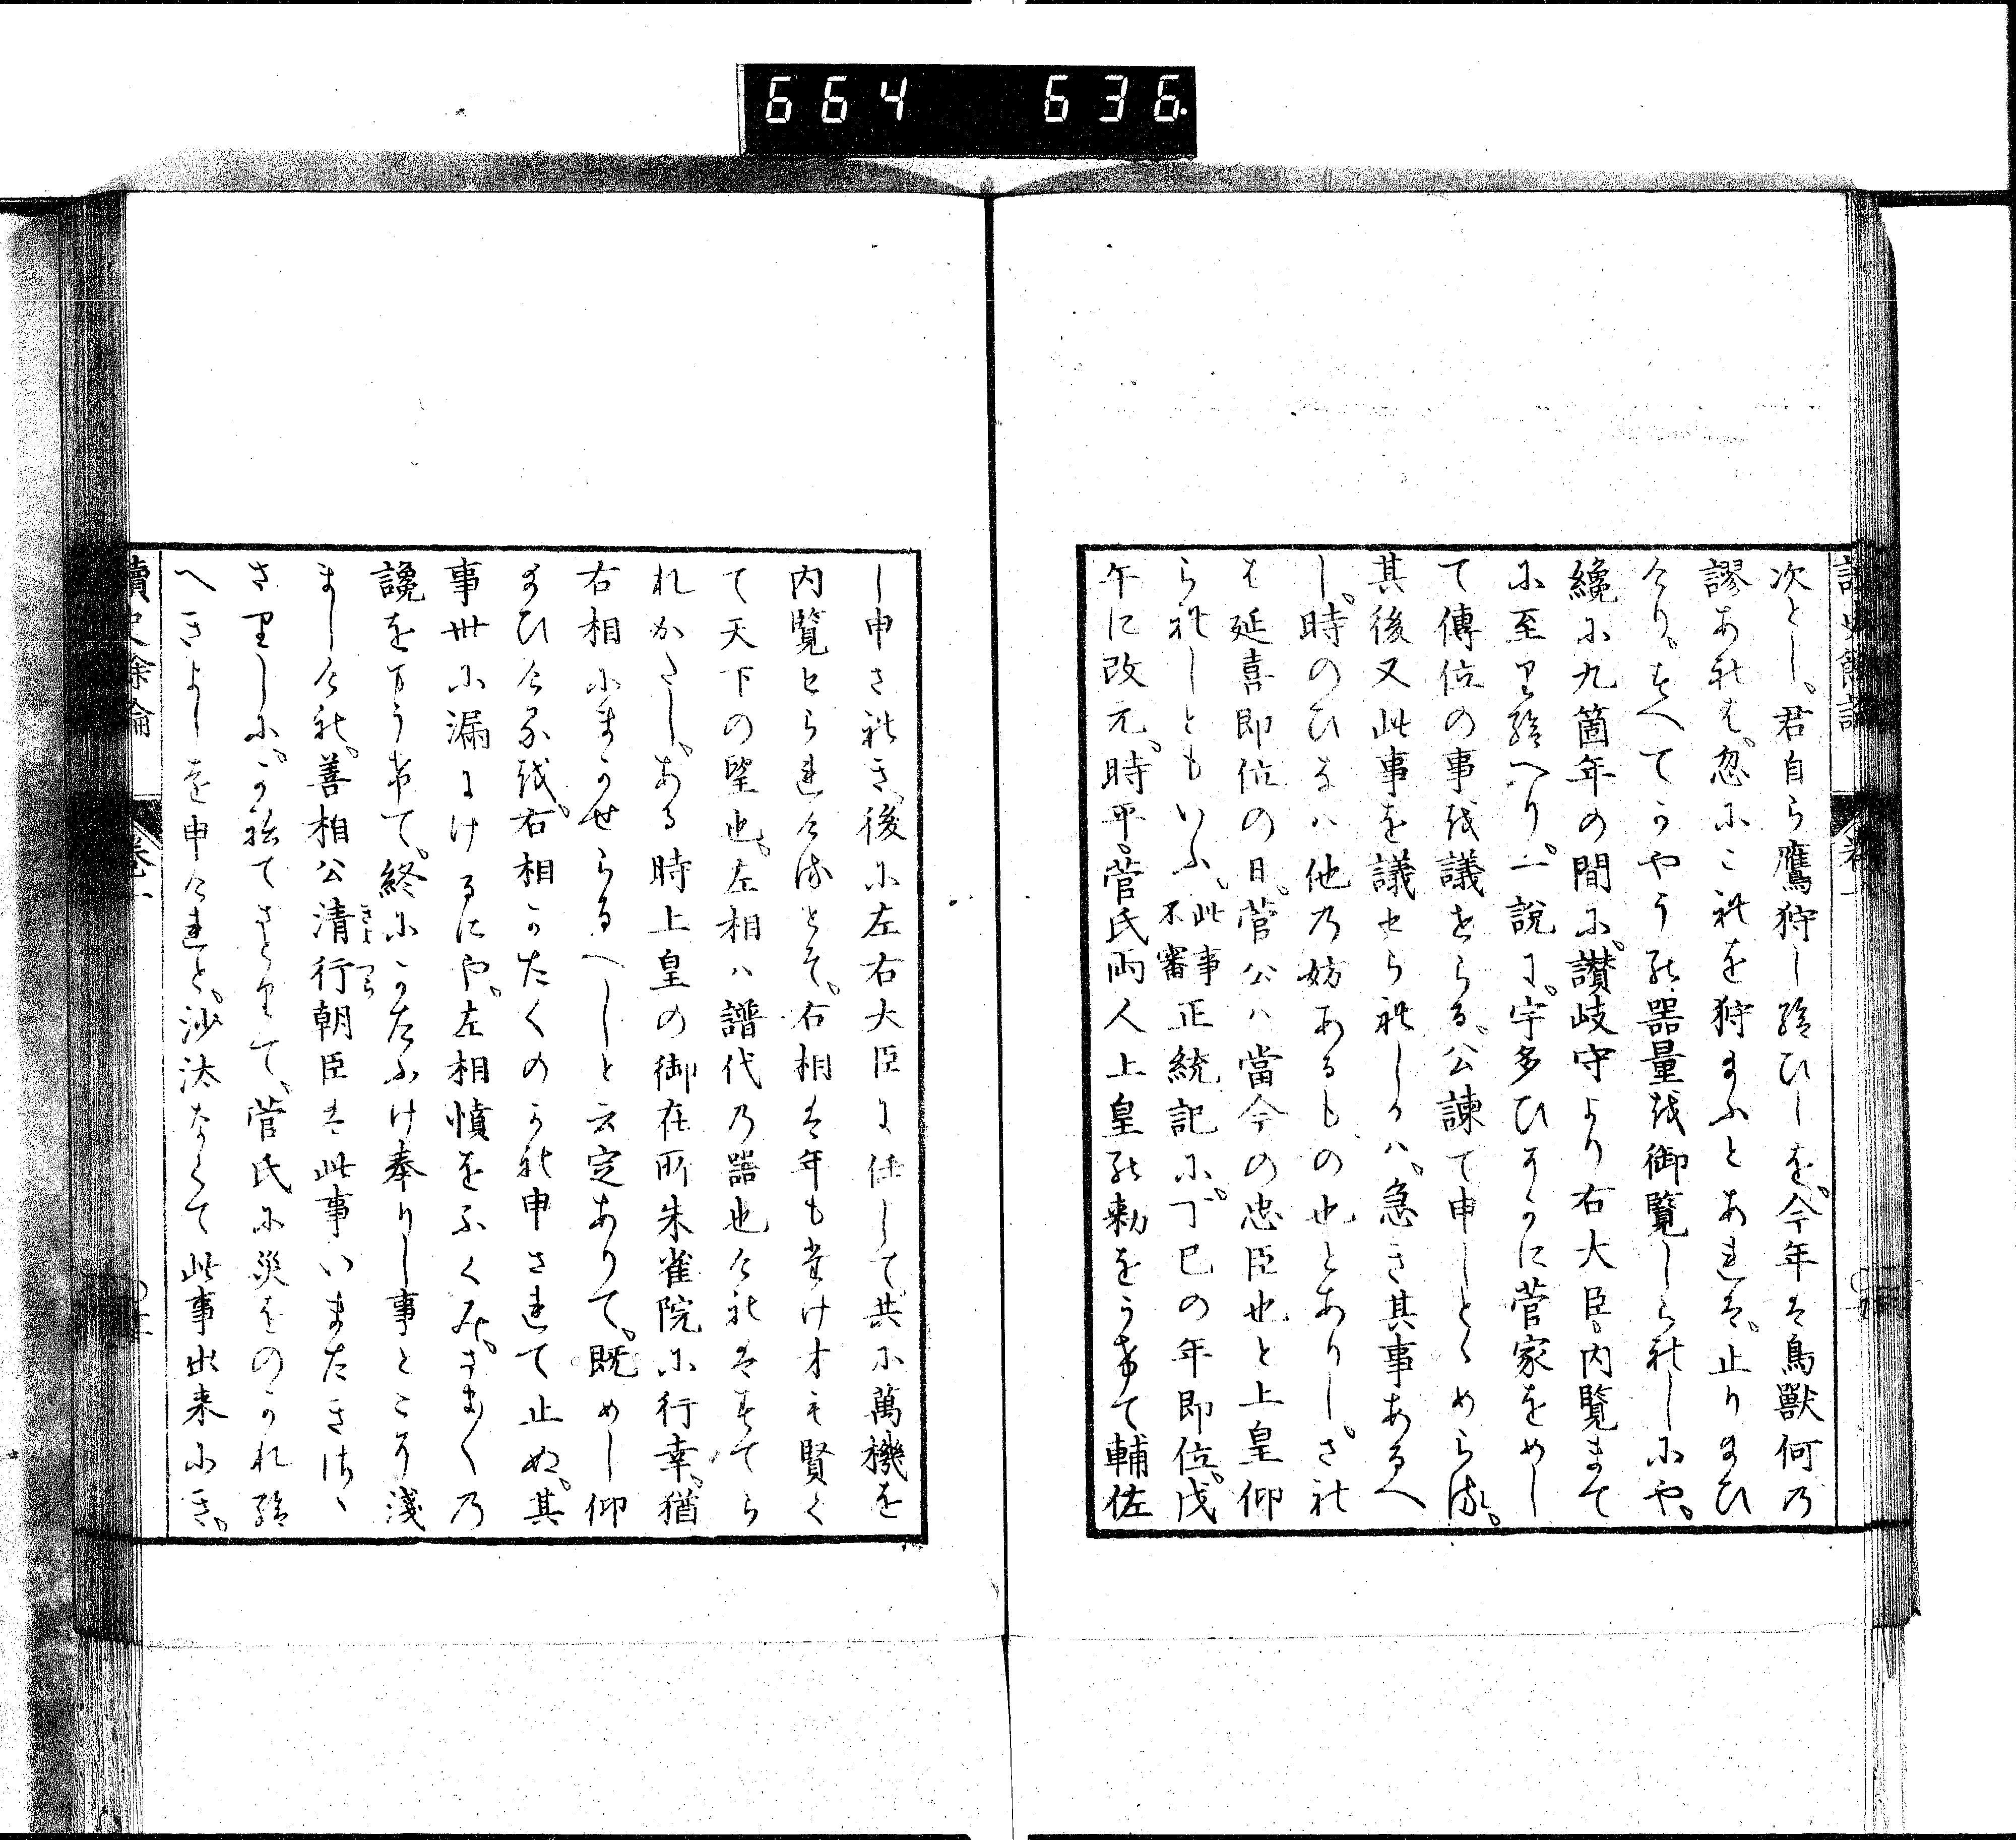 664 636
次とし。君自ら鷹狩し給ひしを。今年は鳥獣何の
謬あれは。忽にこれを狩まふとあれは。止りまひ
けり。すへてかやうの器量を御覧しられしにや。
纔に九箇年の間に。讃岐守より右大臣。内覧まて
に至り給へり。一説に。宇多ひそかに菅家をめし
て傳位の事を議せらる。公諫て申しとゝめらる。
其後又此事を議せられしかは。急き其事あるへ
し。時のひまは他の妨あるもの也とありし。され
は延喜即位の日。菅公は當今の忠臣也と上皇仰
られしともいふ。此事不審正統記に。丁巳の年即位。戊
午に改元。時平。菅氏両人上皇の勅をうけて輔佐
し申されき。後に左右大臣に任して。共に萬機を
内覧せられけるとそ。右相は年もたけ才も賢く
て天下の望也。左相は譜代の器也けれはすてら
れかたし。ある時上皇の御在所朱雀院に行幸。猶
右相にまかせらるへしと云定ありて。既めし仰
まひけるを。右相かたくのかれ申されて止ぬ。其
事世に漏にけるにや。左相憤をふくみ。さま〱の
讒をまうけて。終にかたふけ奉りし事とこそ浅
ましけれ。善相公清行朝臣は此事いまたきさゝ
きよ つら
さりしに。かねてさとりて。菅氏に災をのかれ給
へきよしを申けれと。沙汰なくて此事出来にき。
讀史餘論 巻一